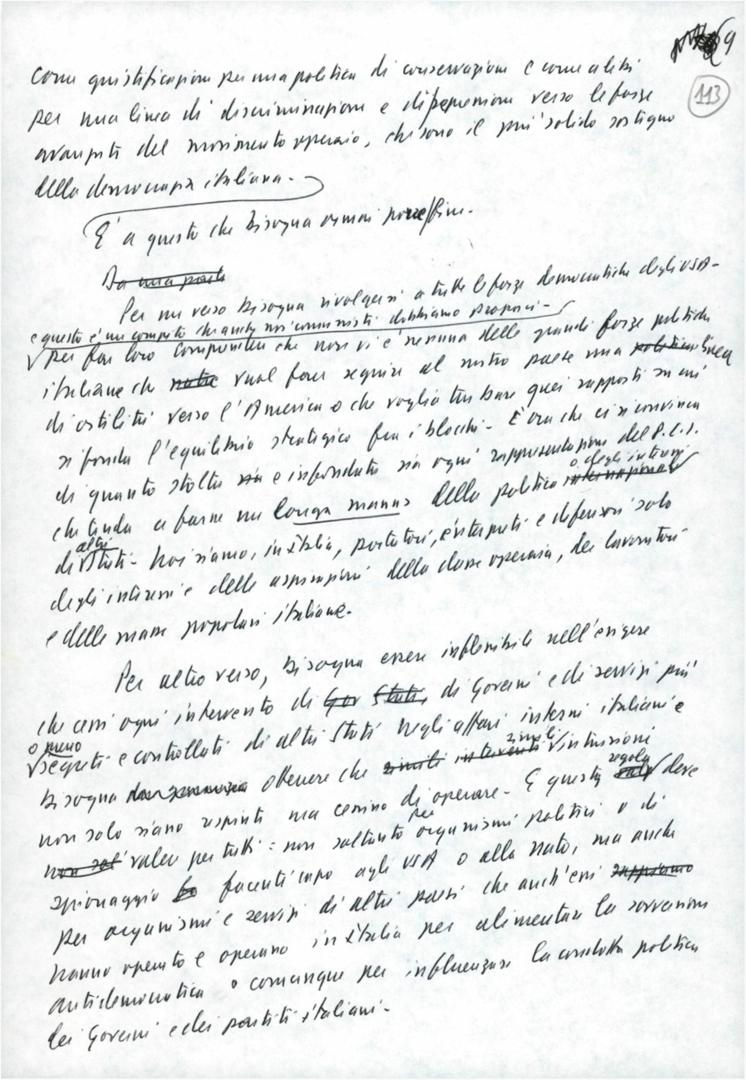 9
113
come giustificazione per una politica di conservazione e come alibi
per una linea di discriminazione e di repressione verso le forze
avanzate del movimento operaio, che sono il più solido sostegno
della democrazia italiana.
È a questo che bisogna ormai porre fine.
Da una parte
Per un verso bisogna rivolgersi a tutte le forze democratiche degli USA -
e questo è un compito che anche noi comunisti dobbiamo proporci -
per far loro comprendere che non vi è nessuna delle grandi forze politiche
italiane che vuol fare seguire al nostro paese una politica linea
di ostilità verso l'America o che voglia turbare quei rapporti su cui
si fonda l'equilibrio strategico fra i blocchi. È ora che ci si convinca
di quanto stolta sia e infondata sia ogni rappresentazione del P.C.I.
che tenda a farne una longa manus della politica o degli interessi
di altri Stati. Noi siamo, in Italia, portatori, interpreti e difensori solo
degli interessi e delle aspirazioni della classe operaia, dei lavoratori
e delle masse popolari italiane.
Per altro verso, bisogna essere inflessibili nell'esigere
che cessi ogni intervento di Gov Stati, di Governi e di servizi più
o meno
segreti e controllati di altri Stati negli affari interni italiani e
bisogna ottenere che simili interventi simili intrusioni
non solo siano respinti ma cessino di operare. E questa regola deve
non sol valere per tutti: non soltanto per organismi politici o di
spionaggio facenti capo agli USA o alla Nato, ma anche
per organismi e servizi di altri paesi che anch'essi sappiamo
hanno operato e operano in Italia per alimentare la sovversione
antidemocratica o comunque per influenzare la condotta politica
dei Governi e dei partiti italiani.